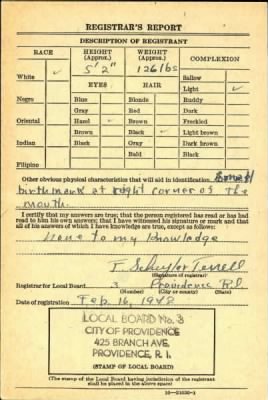 REGISTRAR'S REPORT
DESCRIPTION OF REGISTRANT
RACE
HEIGHT
(Approx.)
WEIGHT
(Approx.)
COMPLEXION
5' 2"
126 lbs
White ✓
Sallow
EYES
HAIR
Light ✓
Negro
Blue
Blonde
Ruddy
Gray
Red
Dark
Oriental
Hazel ✓
Brown
Freckled
Brown
Black ✓
Light brown
Indian
Black
Gray
Dark brown
Bald
Black
Filipino
Other obvious physical characteristics that will aid in identification Small
birthmark at right corner of the
mouth.
I certify that my answers are true; that the person registered has read or has had
read to him his own answers; that I have witnessed his signature or mark and that
all of his answers of which I have knowledge are true, except as follows:
None to my knowledge
T. Schuyler Terrell
(Signature of registrar)
Registrar for Local Board 3 Providence R.I.
(Number) (City or county) (State)
Date of registration Feb. 16, 1942
LOCAL BOARD No. 3
CITY OF PROVIDENCE
425 BRANCH AVE.
PROVIDENCE, R. I.
(STAMP OF LOCAL BOARD)
(The stamp of the Local Board having jurisdiction of the registrant
shall be placed in the above space.)